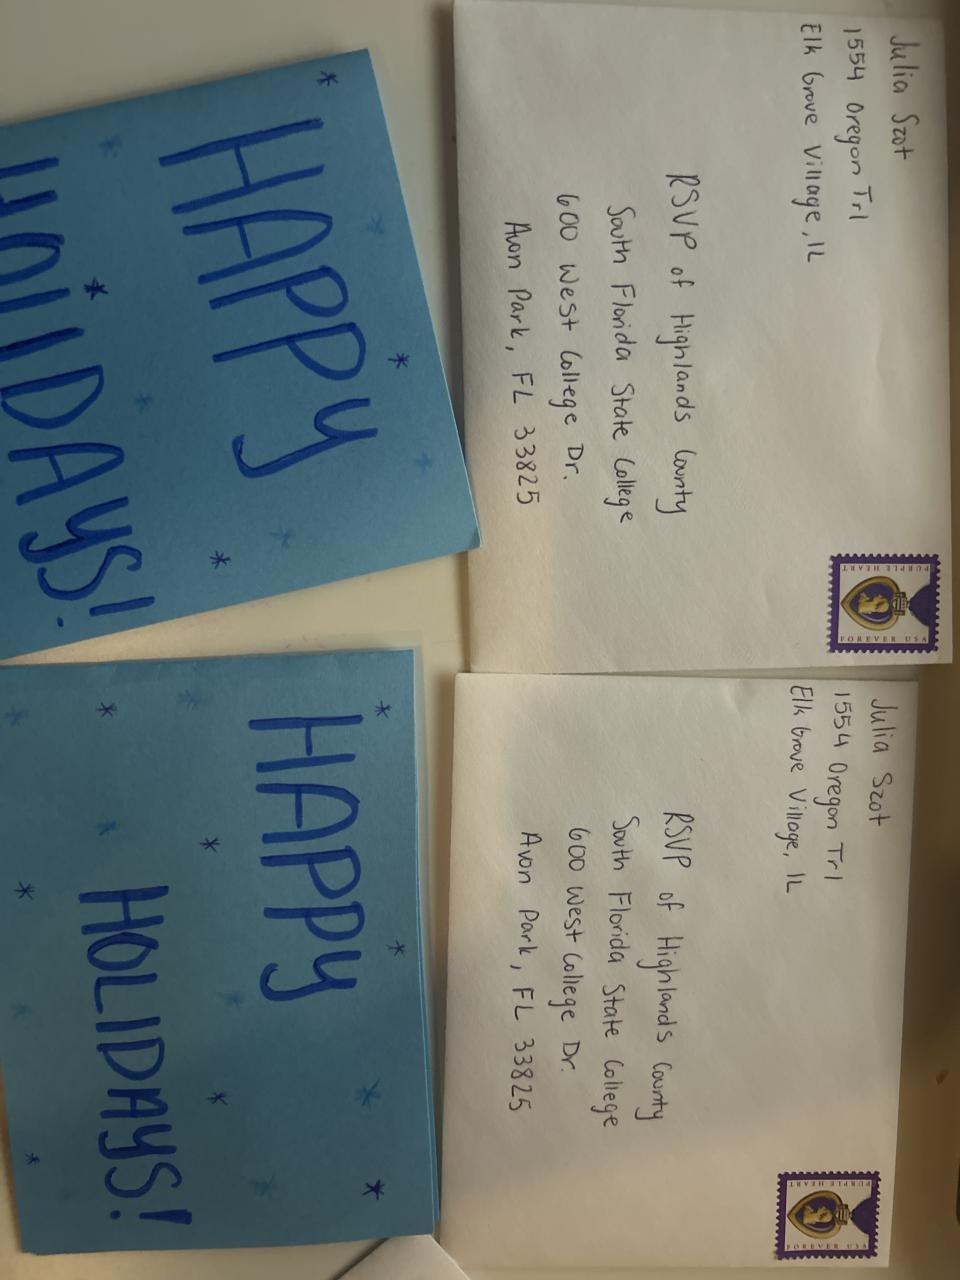 Julia Szot
1554 Oregon Trl
Elk Grove Village, IL
RSVP of Highlands County
South Florida State College
600 West College Dr.
Avon Park, FL 33825
PURPLE HEART
FOREVER USA
HAPPY
HOLIDAYS!
Julia Szot
1554 Oregon Trl
Elk Grove Village, IL
RSVP of Highlands County
South Florida State College
600 West College Dr.
Avon Park, FL 33825
PURPLE HEART
FOREVER USA
HAPPY
HOLIDAYS!